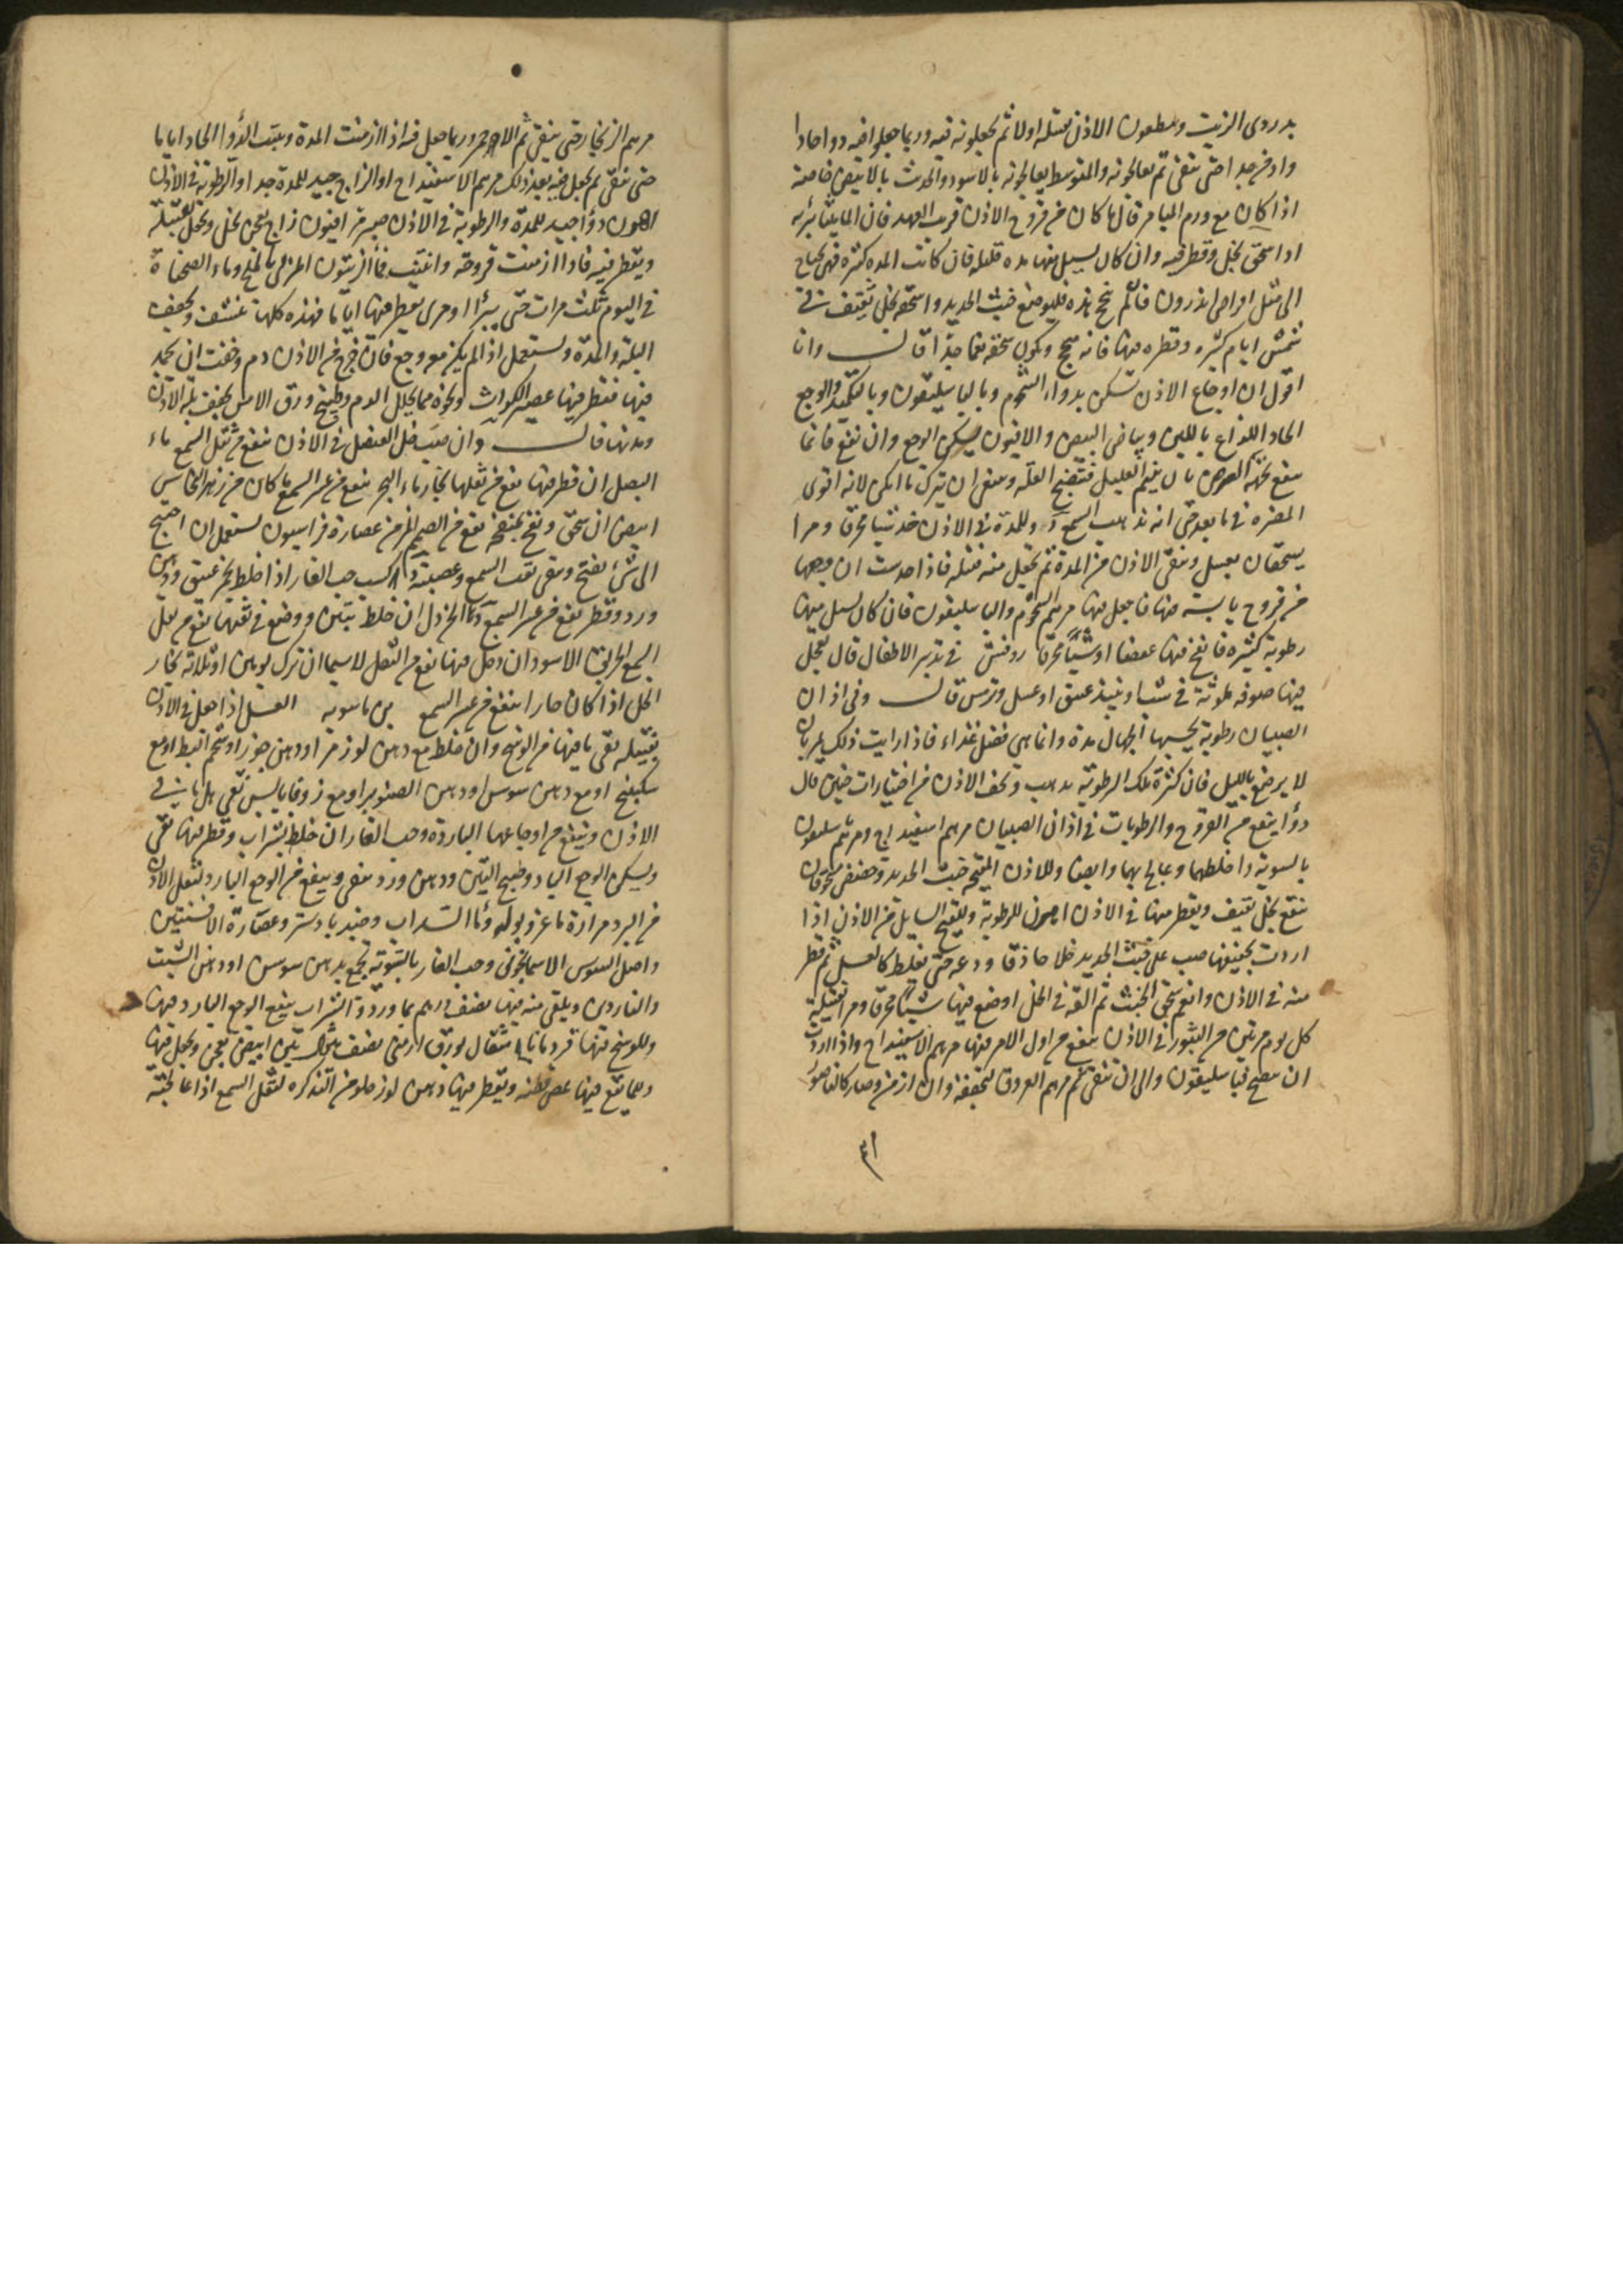 بدردى الزيت وينطعون الاذن بفتيلة اولا ثم يجعلونه فيه وربما جعلوا فيه دواء حادا
جدا حتى تنقى ثم يعالجونه والمتوسط يعالجونه بالاسود والحدث بالابيض خاصة
اذا كان مع ورم الميامر قال ما كان من قروح الاذن قريب العهد فان الماميثا يبرئه
اذا سحق بخل وقطر فيه وان كان يسيل منها مدة قليلة فان كانت المدة كثيرة فهى تحتاج
الى مثل اقراص اندرون فان لم تنجح هذه فليوضع خبث الحديد واسحقه بخل ثقيف فى
شمس ايام كثيرة وقطره فيها فانه عجيب ويكون سحقه نعما جدا قال وانا
اقول ان اوجاع الاذن تسكن بدواء الشحوم وبالباسليقون وبالتكميد والوجع
الحاد اللذاع باللبن وبياض البيض والافيون يسكن الوجع وان نفع فانما
ينفع بان ينيم العليل فتنضج العلة وينبغى ان يترك ما امكن لانه اقوى
المضرة فيما بعد حتى انه يذهب السمع وللمدة فى الاذن خذ شبا محرقا ومرا
يسحقان بعسل وتنقى الاذن من المدة ثم تجعل منه فتيلة فاذا حدست ان وجعها
من قروح يابسة فيها فاجعل فيها مرهم الشحوم والباسليقون فان كان يسيل منها
رطوبة كثيرة فانفخ فيها عفصا او شبا محرقا روفس فى تدبير الاطفال قال تجعل
فيها صوفة ملوثة فى شب او نبيذ عتيق او عسل ومرى قال وفى اذان
الصبيان رطوبة يحسبها الجهال مدة وانما هى فضل غذاء فاذا رايت ذلك فمر بان
لا يرضع بالليل فان كثرة تلك الرطوبة يذهب وتجف الاذن من اختيارات حنين قال
دواء ينفع من القروح والرطوبات فى اذان الصبيان مرهم اسفيداج ومرهم باسليقون
بالسوية واخلطهما وعالج بهما وايضا وللاذن المقيحة خبث الحديد وحضض محرقان
تنقع بخل ثقيف ويقطر منها فى الاذن للرطوبة وللقيح السايل من الاذن اذا
اردت تجفيفها صب على خبث الحديد خلا حاذقا ودعه حتى يغلظ كالعسل ثم قطر
منه فى الاذن وانعم سحق الخبث ثم القه فى الخل اوضع فيها شبا محرقا ومرا بفتيلة
كل يوم مرتين من البثور فى الاذن ينفع من اول الامر فيها مرهم الاسفيداج واذا اردت
ان تنضج فباسليقون والى ان تنقى ثم مرهم العروق لتجففه وان ازمن وصار كالناصور
مرهم الزنجار حتى ينقى ثم الاحمر وربما جعل فيه اذا ازمنت المدة ويثبت الدواء الحاد اياما
حتى تنقى ثم يجعل فيه بعد ذلك مرهم الاسفيداج او الزاج جيد للمدة جدا والرطوبة فى الاذن
دواء جيد للمدة والرطوبة فى الاذن صبر مر افيون زاج يعجن بخل وتحمل بفتيلة
ويقطر فيه فاذا ازمنت قروحه وانتنت فماء الزيتون المربى بالملح وماء الصحناة
فى اليوم ثلث مرات حتى يبرأ او مرى يقطر فيها اياما فهذه كلها تنشف وتجفف
البلة والمدة وتستعمل اذا لم يكن مع وجع فان خرج من الاذن دم وخفت ان يجمد
فيها فتقطر فيها عصير الكراث ونحوه مما يحلل الدم وطبيخ ورق الاس يجفف بلة الاذن
ومدتها قال وان صب خل العنصل فى الاذن نفع من ثقل السمع ماء
البصل ان قطر فيها نفع من ثقلها بخار ماء البحر ينفع من عسر السمع ما كان من زهر النحاس
ابيض ان سحق ونفخ بمنفخ نفع من الصمم المزمن عصارة فراسيون تستعمل ان احتيج
الى شئ يفتح وينقى ثقب السمع وعصبته كسب حب الغار اذا خلط بخمر عتيق ودهن
ورد وقطر نفع من عسر السمع الخردل ان خلط بتين ووضع فى ثقبها نفع من ثقل
السمع الخربق الاسود ان دخل فيها نفع من الثقل لا سيما ان ترك يومين او ثلاثة بخار
الخل اذا كان حارا ينفع من عسر السمع بن ماسويه العسل اذا جعل فى الاذن
بفتيلة نقى ما فيها من الوسخ وان خلط مع دهن لوز مر او دهن جوز او شحم البط او مع
سكبينج او مع دهن سوسن او دهن الصنوبر او مع زوفا يابس نقى كل ما فى
الاذن وينفع من اوجاعها الباردة وحب الغار ان خلط بشراب وقطر فيها نقى
وسكن الوجع البارد وطبيخ التين ودهن ورد ينقى وينفع من الوجع البارد ولثقل الاذن
من البرد مرارة ماعز وبوله وماء السداب وجندبادستر وعصارة الافسنتين
واصل السوس الاسمانجونى وحب الغار بالسوية تجمع بدهن سوسن او دهن الشبت
والناردين ويلقى منه فيها نصف درهم بماء ورد والشراب ينفع الوجع البارد فيها
وللوسخ فيها قردمانا مثقال بورق ارمنى نصف مثقال تين ابيض يعجن ويجعل فيها
ويقطر فيها دهن لوز حلو من التذكرة لثقل السمع اذا عالجته